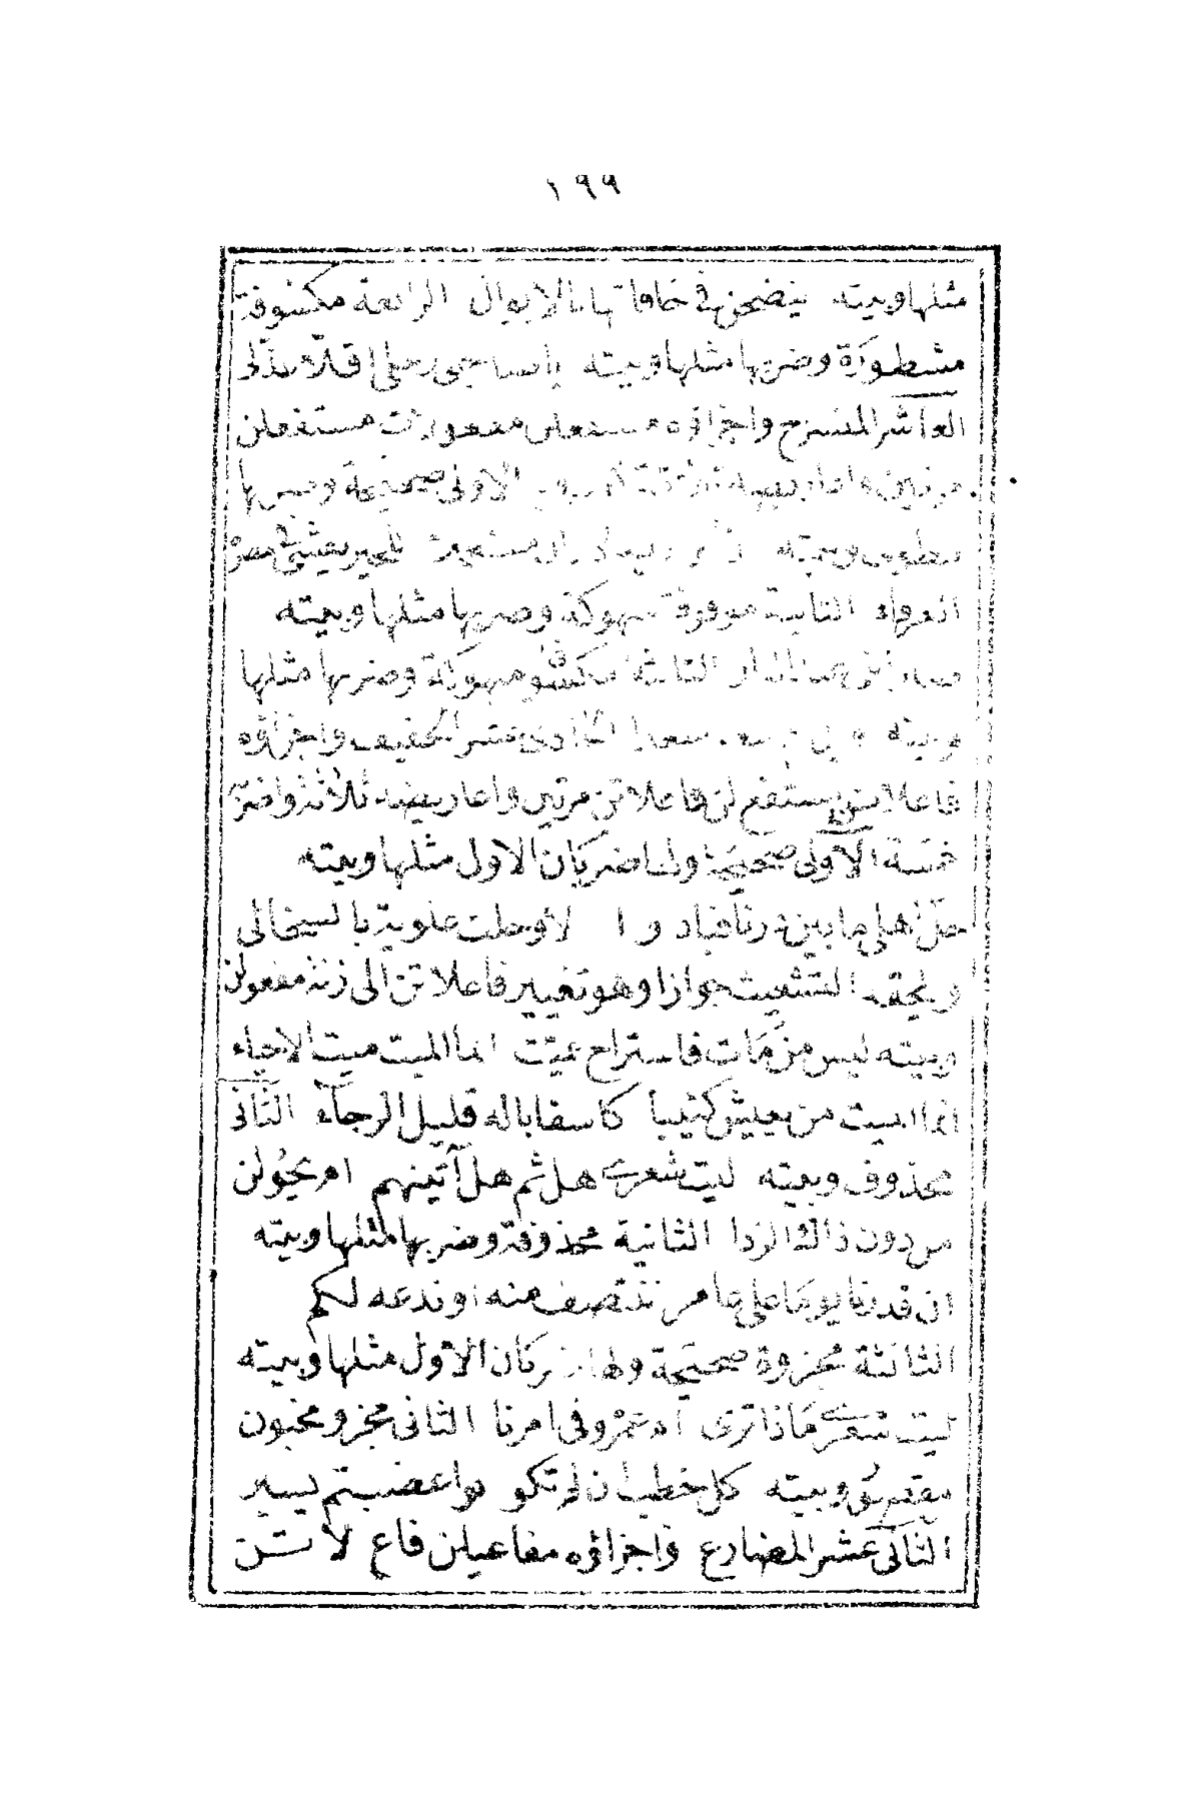 ١٩٩
مثلها وبيته ينضحن فى حافاتها بالابوال الرابعة مكشوفة
مشطورة وضربها مثلها وبيته يا صاحبى رحلى اقلا عذلى
العاشر المنسرح واجزاؤه مستفعلن مفعولات مستفعلن
مرتين واعاريضه ثلاثة الاولى صحيحة وضربها
مطوى وبيته ان ابن زيد لا زال مستعملا للخير يفشى فى مصره
العرفا الثانية موقوفة منهوكة وضربها مثلها وبيته
صبرا بنى عبد الدار الثالثة مكشوفة منهوكة وضربها مثلها
وبيته ويل سعد سعدا الحادى عشر الخفيف واجزاؤه
فاعلاتن مستفع لن فاعلاتن مرتين واعاريضه ثلاثة واضربه
خمسة الاولى صحيحة ولها ضربان الاول مثلها وبيته
حل اهلى ما بين درنا فبادو لا وحلت علوية بالسخالى
ويلحقه التشعيث جوازا وهو تغيير فاعلاتن الى زنة مفعولن
وبيته ليس من مات فاستراح بميت انما الميت ميت الاحياء
انما الميت من يعيش كئيبا كاسفا باله قليل الرجاء الثانى
محذوف وبيته ليت شعرى هل ثم هل آتينهم ام يحولن
من دون ذاك الردا الثانية محذوفة وضربها مثلها وبيته
ان قدرنا يوما على عامر ننتصف منه او ندعه لكم
الثالثة مجزوة صحيحة ولها ضربان الاول مثلها وبيته
ليت شعرى ماذا ترى ام عمرو فى امرنا الثانى مجزو مخبون
مقصور وبيته كل خطب ان لم تكو نوا غضبتم يسير
الثانى عشر المضارع واجزاؤه مفاعيلن فاع لاتن